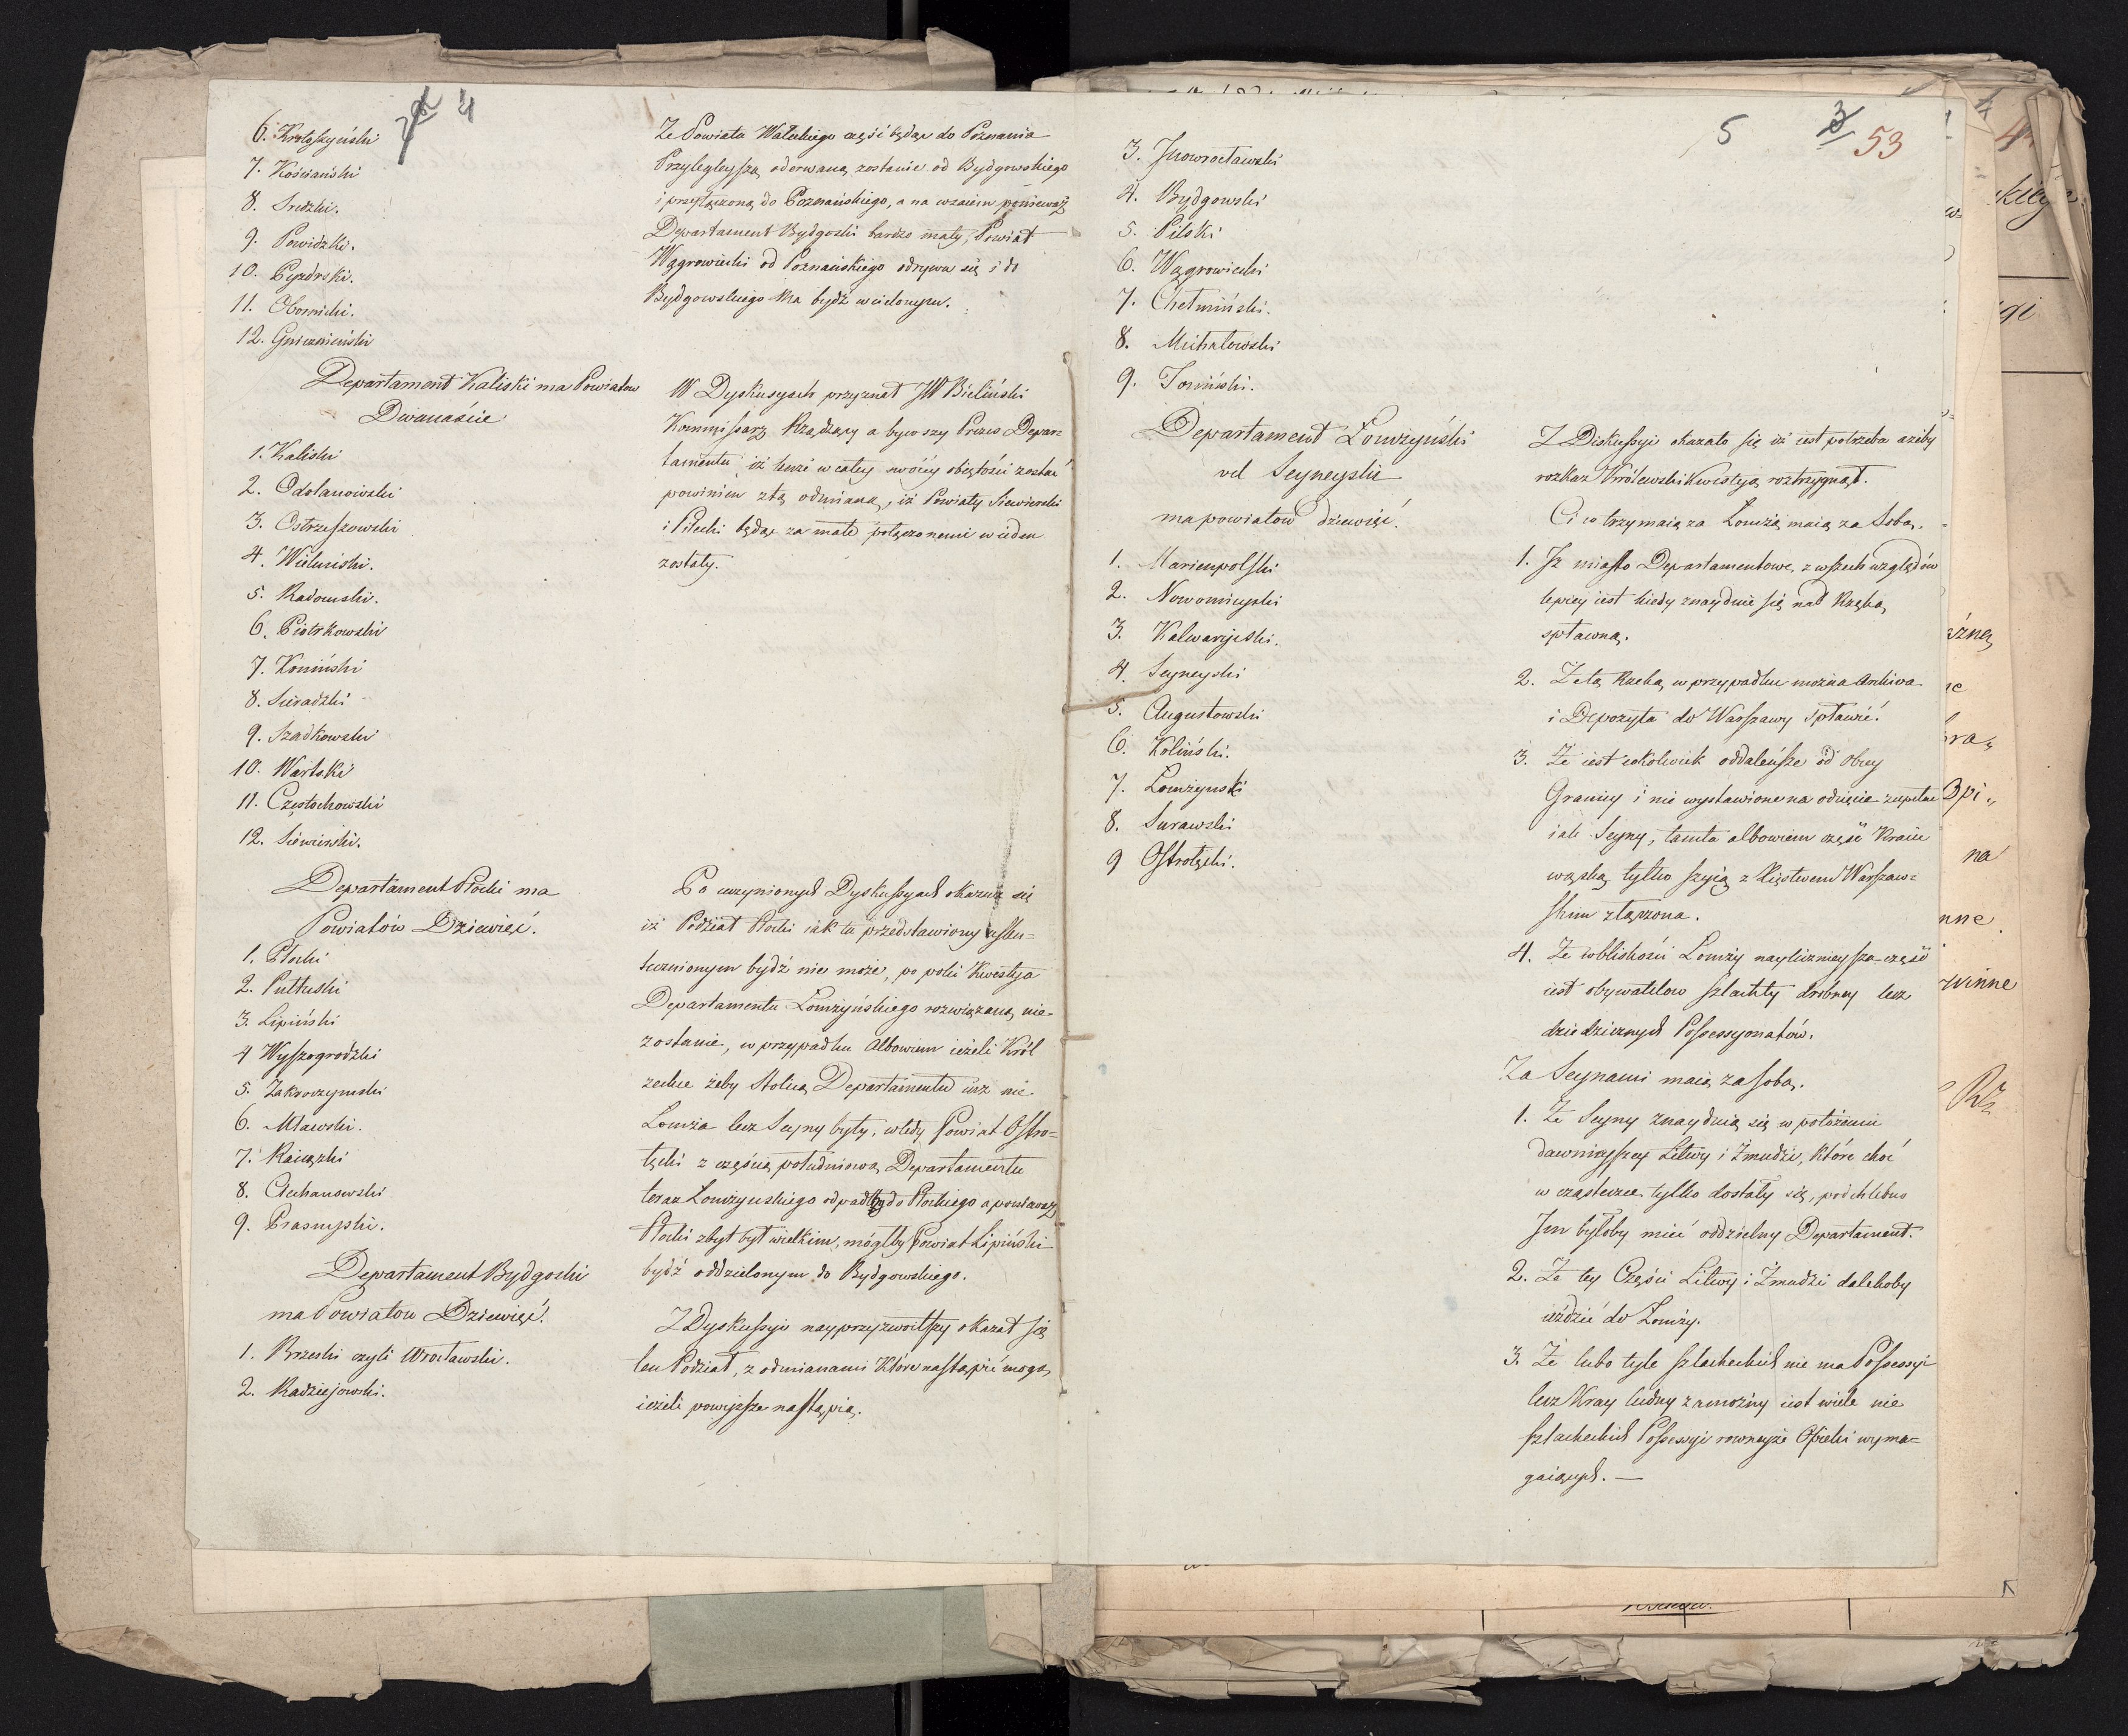 4
6. Krotoszyński
7. Kościański
8. Sredzki.
9. Powidzki.
10. Pyzdrski.
11. Obornicki.
12. Gnieznieński
Ze Powiatu Wałeckiego część będąc do Poznania
Przylegleyszą oderwaną zostanie od Bydgowskiego
i przyłączoną do Poznańskiego, a na wzaiem ponieważ
Departament Bydgoski bardzo mały, Powiat
Wągrowiecki od Poznańskiego odrywa się i do
Bydgowskiego ma bydź wcielonym.
Departament Kaliski ma Powiatow
Dwanaście
1. Kaliski
2. Odolanowski
3. Ostrzeszowski
4. Wieluński.
5. Radomski.
6. Piotrkowski
7. Koniński
8. Sieradzki
9. Szadkowski
10. Wartski
11. Częstochowski
12. Siewierski.
W Dyskusyach przyznał JW Bieliński
Kommissarz Rządzący a bywszy Prezes Depar=
tamentu, iż tenże w całey swoiey obiętości zostać
powinien z tą odmianą, iż Powiaty Siewierski
i Pilecki będąc za małe połączonemi w ieden
zostały.
Departament Płocki ma
Powiatów Dziewięć.
1. Płocki
2. Pułtuski
3. Lipiński
4 Wyszogrodzki
5. Zakroczymski
6. Mławski.
7. Raciązki
8. Ciechanowski
9. Prasnyski.
Po uczynionych Dyskussyach okazuie się
iż Podział Płocki iak tu przedstawiony usku=
tecznionym bydź nie może, po poki Kwestya
Departamentu Łomżyńskiego rozwiązaną nie
zostanie, w przypadku Albowiem ieżeli Król
zechce żeby Stolicą Departamentu iuż nie
Łomża lecz Seyny były, wtedy Powiat Ostro=
łęcki z częścią południową Departamentu
teraz Łomżyńskiego odpadłby do Płockiego a ponieważ
Płocki zbyt był wielkim, mógłby Powiat Lipiński
bydź oddzielonym do Bydgowskiego.
Departament Bydgoski
ma Powiatow Dziewięć.
1. Brzeski czyli Wrocławski.
2. Radziejowski.
Z Dyskussyi nayprzyzwoitszy okazał się
ten Podział, z odmianami które nastąpić mogą
ieżeli powyższe nastąpią.
5
3
53
3. Jnowrocławski
4. Bydgowski
5. Pilski
6. Wągrowiecki
7. Chełmiński.
8. Michałowski
9. Toruński.
Departament Łomżyński
vel Seyneyski
ma powiatow dziewięć.
1. Marienpolski
2. Nowomieyski
3. Kalwaryiski.
4. Seyneyski
5. Augustowski
6. Koliński.
7. Łomżynski
8. Surawski
9 Ostrołęcki.
Z Diskussyi okazało się iż iest potrzeba ażeby
rozkaz Królewski Kwestyą roztrzygnął.
Ci co trzymaią za Łomżą maią za Sobą.
1. Iż miasto Departamentowe, z wszech względów
lepiey iest kiedy znayduie się nad Rzeką
spławną.
2. Ze tą Rzeką w przypadku można Archiva
i Depozyta do Warszawy Spławić.
3. Że iest cokolwiek oddaleńsze od obcey
Granicy i nie wystawione na odcięcie zupełne
iak Seyny, tamta albowiem część Kraiu
wązką tylko szyią z Xięstwem Warszaw=
skim złączona.
4. Że w bliskości Łomży nayliczniejsza część
iest obywatelow szlachty drobney lecz
dziedzicznych Possessyonatów.
Za Seynami maią za sobą.
1. Że Seyny znayduią się w położeniu
dawnieyszey Litwy i Żmudzi, które choć
w cząsteczce tylko dostały się, pochlebno
Im byłoby mieć oddzielny Departament.
2. Że tey Części Litwy i Żmudzi dalekoby
ieździć do Łomży.
3. Że lubo tyle szlacheckich nie ma Possessyi
lecz Kray ludny zamożny iest wiele nie
szlacheckich Possessyi rowneyże Opieki wyma=
gaiących. —